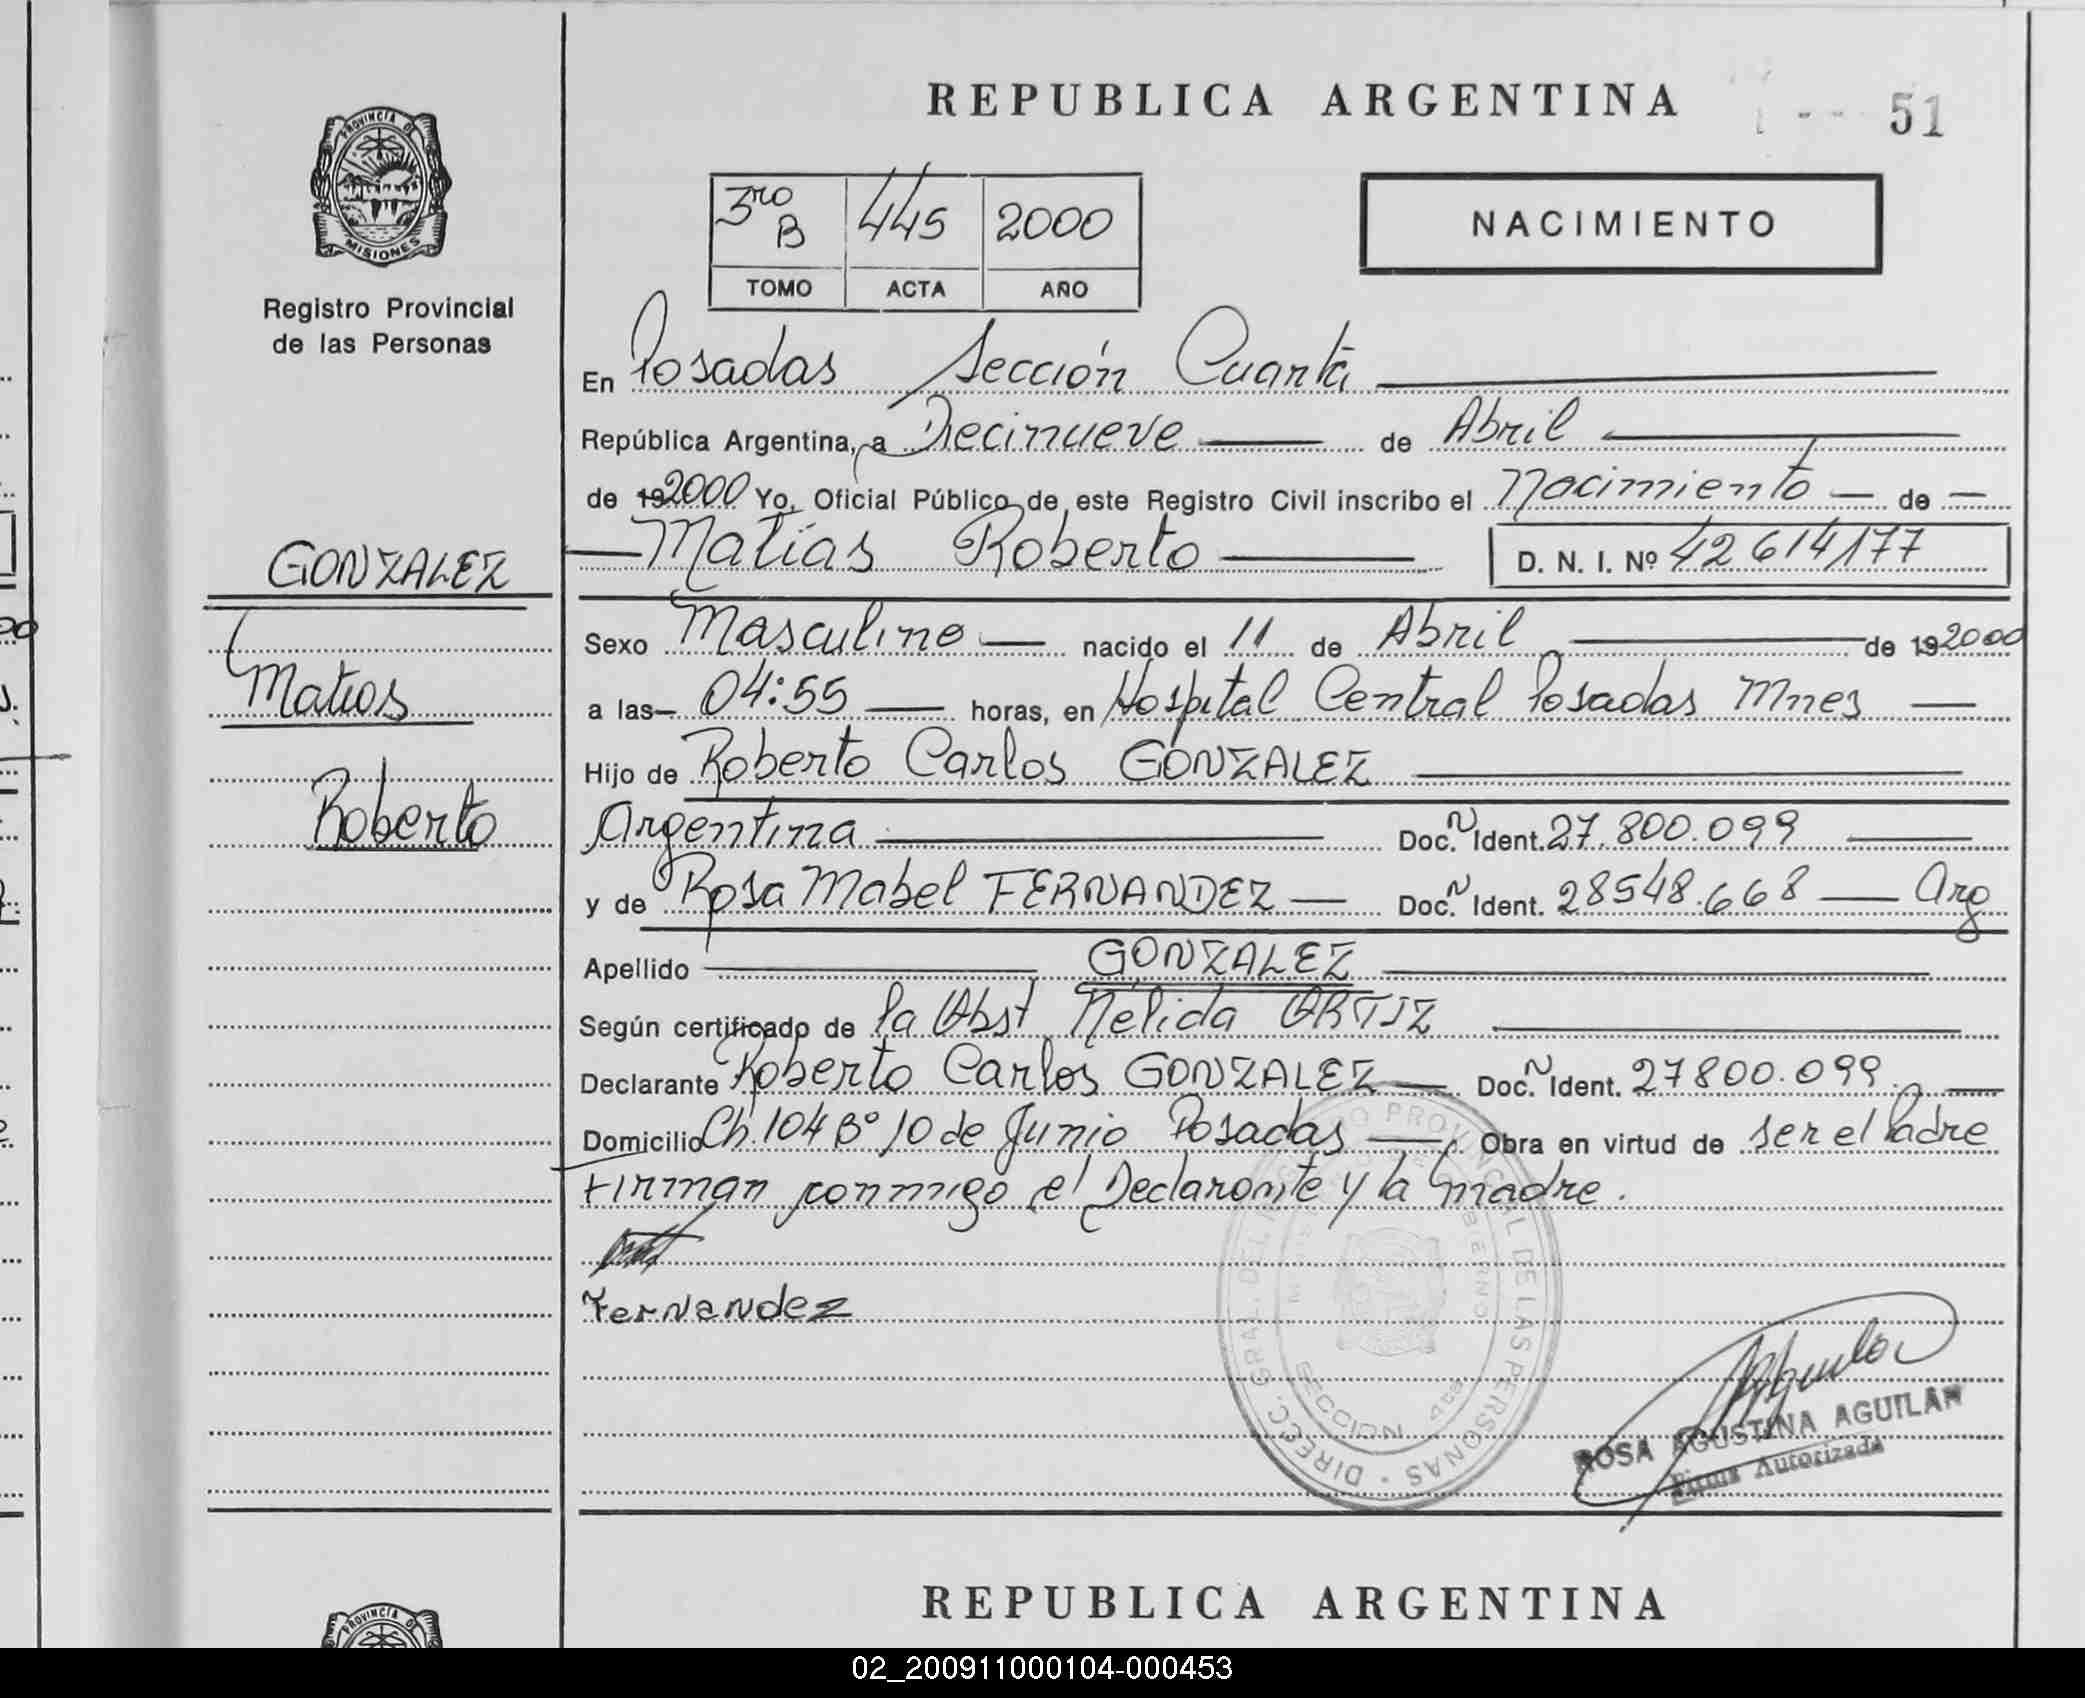 REPUBLICA ARGENTINA
51
PROVINCIA DE
MISIONES
Registro Provincial
de las Personas
3ro B 445 2000
TOMO ACTA AÑO
NACIMIENTO
En Posadas Sección Cuarta
República Argentina, a Diecinueve de Abril
de 19 2000 Yo, Oficial Público de este Registro Civil inscribo el Nacimiento de
Matías Roberto D. N. I. Nº 42614177
GONZALEZ
Matias
Roberto
Sexo Masculino nacido el 11 de Abril de 19 2000
a las 04:55 horas, en Hospital Central Posadas Mnes
Hijo de Roberto Carlos GONZALEZ
Argentina Doc. N Ident. 27.800.099
y de Rosa Mabel FERNANDEZ Doc. N Ident. 28548.668 Arg
Apellido GONZALEZ
Según certificado de la Obst Nélida ORTIZ
Declarante Roberto Carlos GONZALEZ Doc. N Ident. 27800.099
Domicilio Ch. 104 Bº 10 de Junio Posadas Obra en virtud de ser el Padre
Firman conmigo el Declarante y la madre.
Fernandez
DIRECC. GRAL. DEL REGISTRO PROVINCIAL DE LAS PERSONAS
SECCION 4ta
ROSA AGUSTINA AGUILAR
Firma Autorizada
REPUBLICA ARGENTINA
PROVINCIA DE
02_200911000104-000453